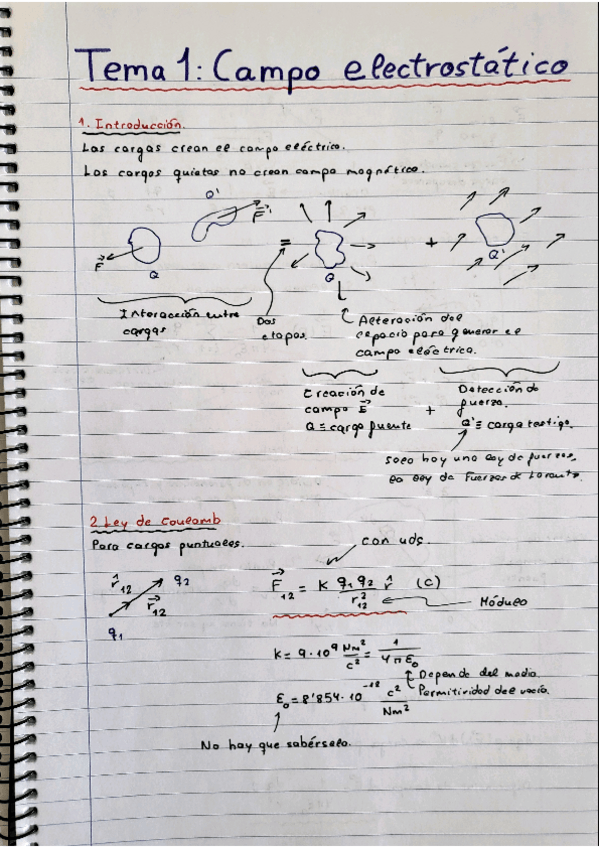 Tema 1: Campo electrostático
1. Introducción.
Las cargas crean el campo eléctrico.
Las cargas quietas no crean campo magnético.
Q'
F⃗'
=
+
F⃗
Q
Q
Q'
Interacción entre
cargas
Dos
etapas.
Alteración del
espacio para generar el
campo eléctrico.
Creación de
campo E⃗
Q ≡ carga fuente
+
Detección de
fuerza.
Q' ≡ carga testigo.
Solo hay una ley de fuerzas,
la ley de Fuerzas de Lorentz.
2 Ley de Coulomb
Para cargas puntuales.
con uds.
r̂₁₂
q₂
r⃗₁₂
q₁
F⃗₁₂ = K q₁ q₂ / r₁₂² r̂ (C)
Módulo
K = 9·10⁹ Nm²/C² = 1/4πε₀
Depende del medio.
Permitividad del vacío.
ε₀ = 8'854·10⁻¹² C²/Nm²
No hay que sabérselo.